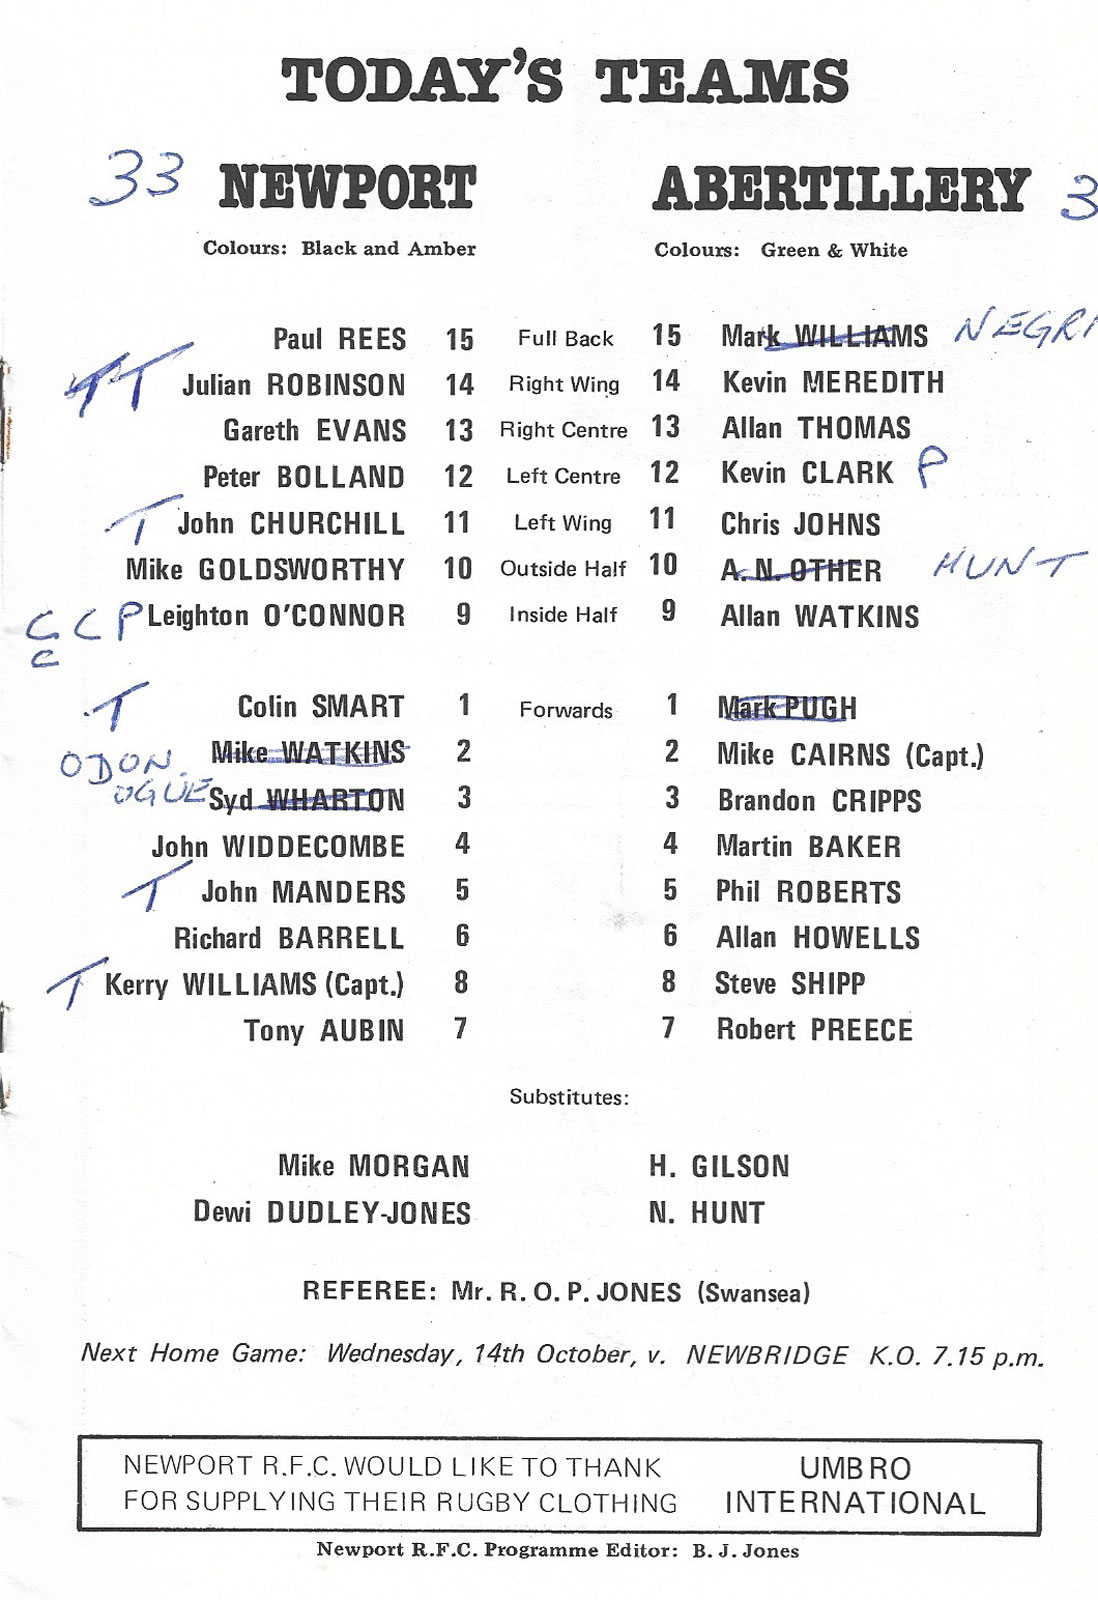 TODAY'S TEAMS
33 NEWPORT ABERTILLERY 3
Colours: Black and Amber Colours: Green & White
Paul REES 15 Full Back 15 Mark WILLIAMS NEGRI
TT Julian ROBINSON 14 Right Wing 14 Kevin MEREDITH
Gareth EVANS 13 Right Centre 13 Allan THOMAS
Peter BOLLAND 12 Left Centre 12 Kevin CLARK P
T John CHURCHILL 11 Left Wing 11 Chris JOHNS
Mike GOLDSWORTHY 10 Outside Half 10 A. N. OTHER HUNT
C C P Leighton O'CONNOR 9 Inside Half 9 Allan WATKINS
C
T Colin SMART 1 Forwards 1 Mark PUGH
ODON Mike WATKINS 2 2 Mike CAIRNS (Capt.)
OGUE Syd WHARTON 3 3 Brandon CRIPPS
John WIDDECOMBE 4 4 Martin BAKER
T John MANDERS 5 5 Phil ROBERTS
Richard BARRELL 6 6 Allan HOWELLS
T Kerry WILLIAMS (Capt.) 8 8 Steve SHIPP
Tony AUBIN 7 7 Robert PREECE
Substitutes:
Mike MORGAN H. GILSON
Dewi DUDLEY-JONES N. HUNT
REFEREE: Mr. R. O. P. JONES (Swansea)
Next Home Game: Wednesday, 14th October, v. NEWBRIDGE K.O. 7.15 p.m.
NEWPORT R.F.C. WOULD LIKE TO THANK UMBRO
FOR SUPPLYING THEIR RUGBY CLOTHING INTERNATIONAL
Newport R.F.C. Programme Editor: B. J. Jones